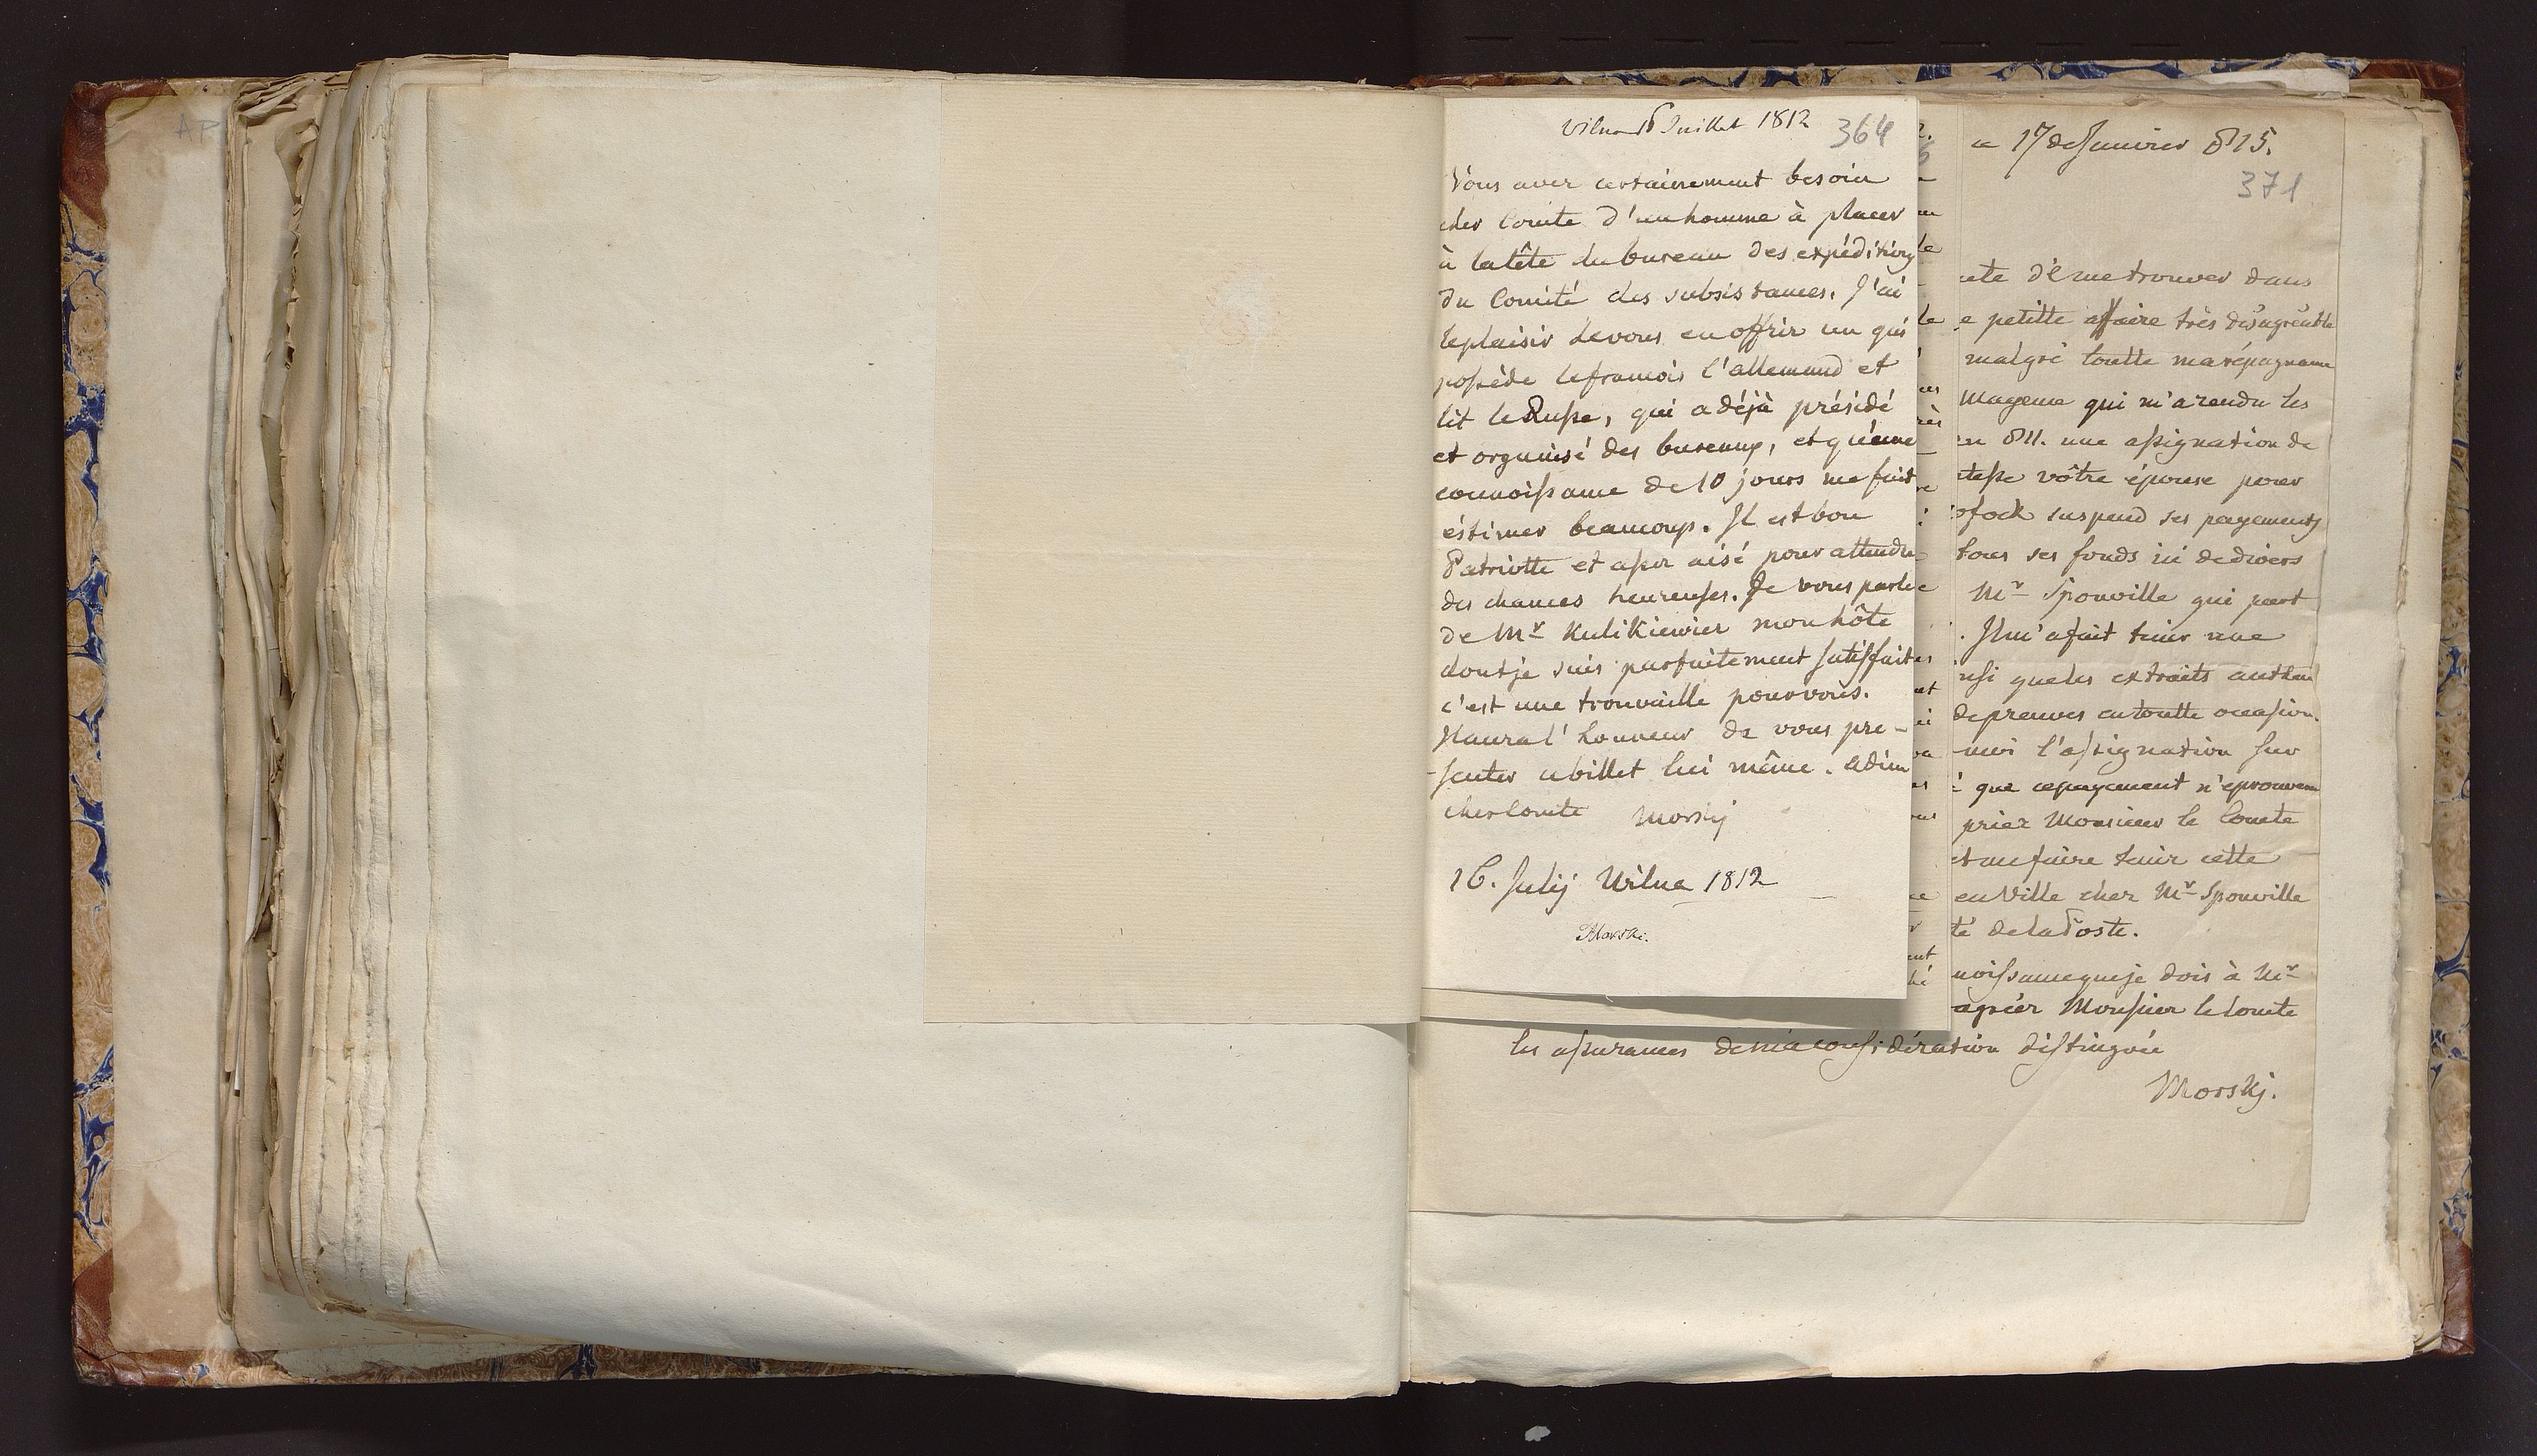 Vilna 16 Juillet 1812
364
Vous avez certainement besoin
cher Comte d'un homme à placer
à la tête du bureau des expéditions
du Comité des subsistances. J'ai
le plaisir de vous en offrir un qui
possède le francois l'allemand et
lit le Russe, qui a déjà présidé
et organisé des bureaux, et qu'une
connoissance de 10 jours me fait
éstimer beaucoup. Il est bon
Patriotte et assez aisé pour attendre
des chances heureuses. Je vous parle
de Mr Kulikiewicz mon hôte
dont je suis parfaitement satisfait
c'est une trouvaille pour vous.
Il aura l'honneur de vous pre-
-senter ce billet lui même. adieu
cher Comte Morskj
16. Julij Wilna 1812
Morski.
ce 17 de Janvier 815.
371
me trouver dans
e petitte affaire très désagréable
malgré toutte ma répugnance
Mayeux qui m'a rendu les
en 811. une assignation de
ntesse vôtre épouse pour
ofock suspend ses payements
tous ses fonds ici de divers
Mr Sponville qui part
. Il m'a fait tenir une
nsi que les extraits authen
de preuves en toutte occasion.
moi l'assignation sur
é que ce payement n'eprouvera
prier Monsieur le Comte
et me faire tenir cette
en Ville chez Mr Sponville
té de la Poste.
noissance que je dois à Mr
agréer Monsieur le Comte
les assurances de ma considération distinguée
Morskj.